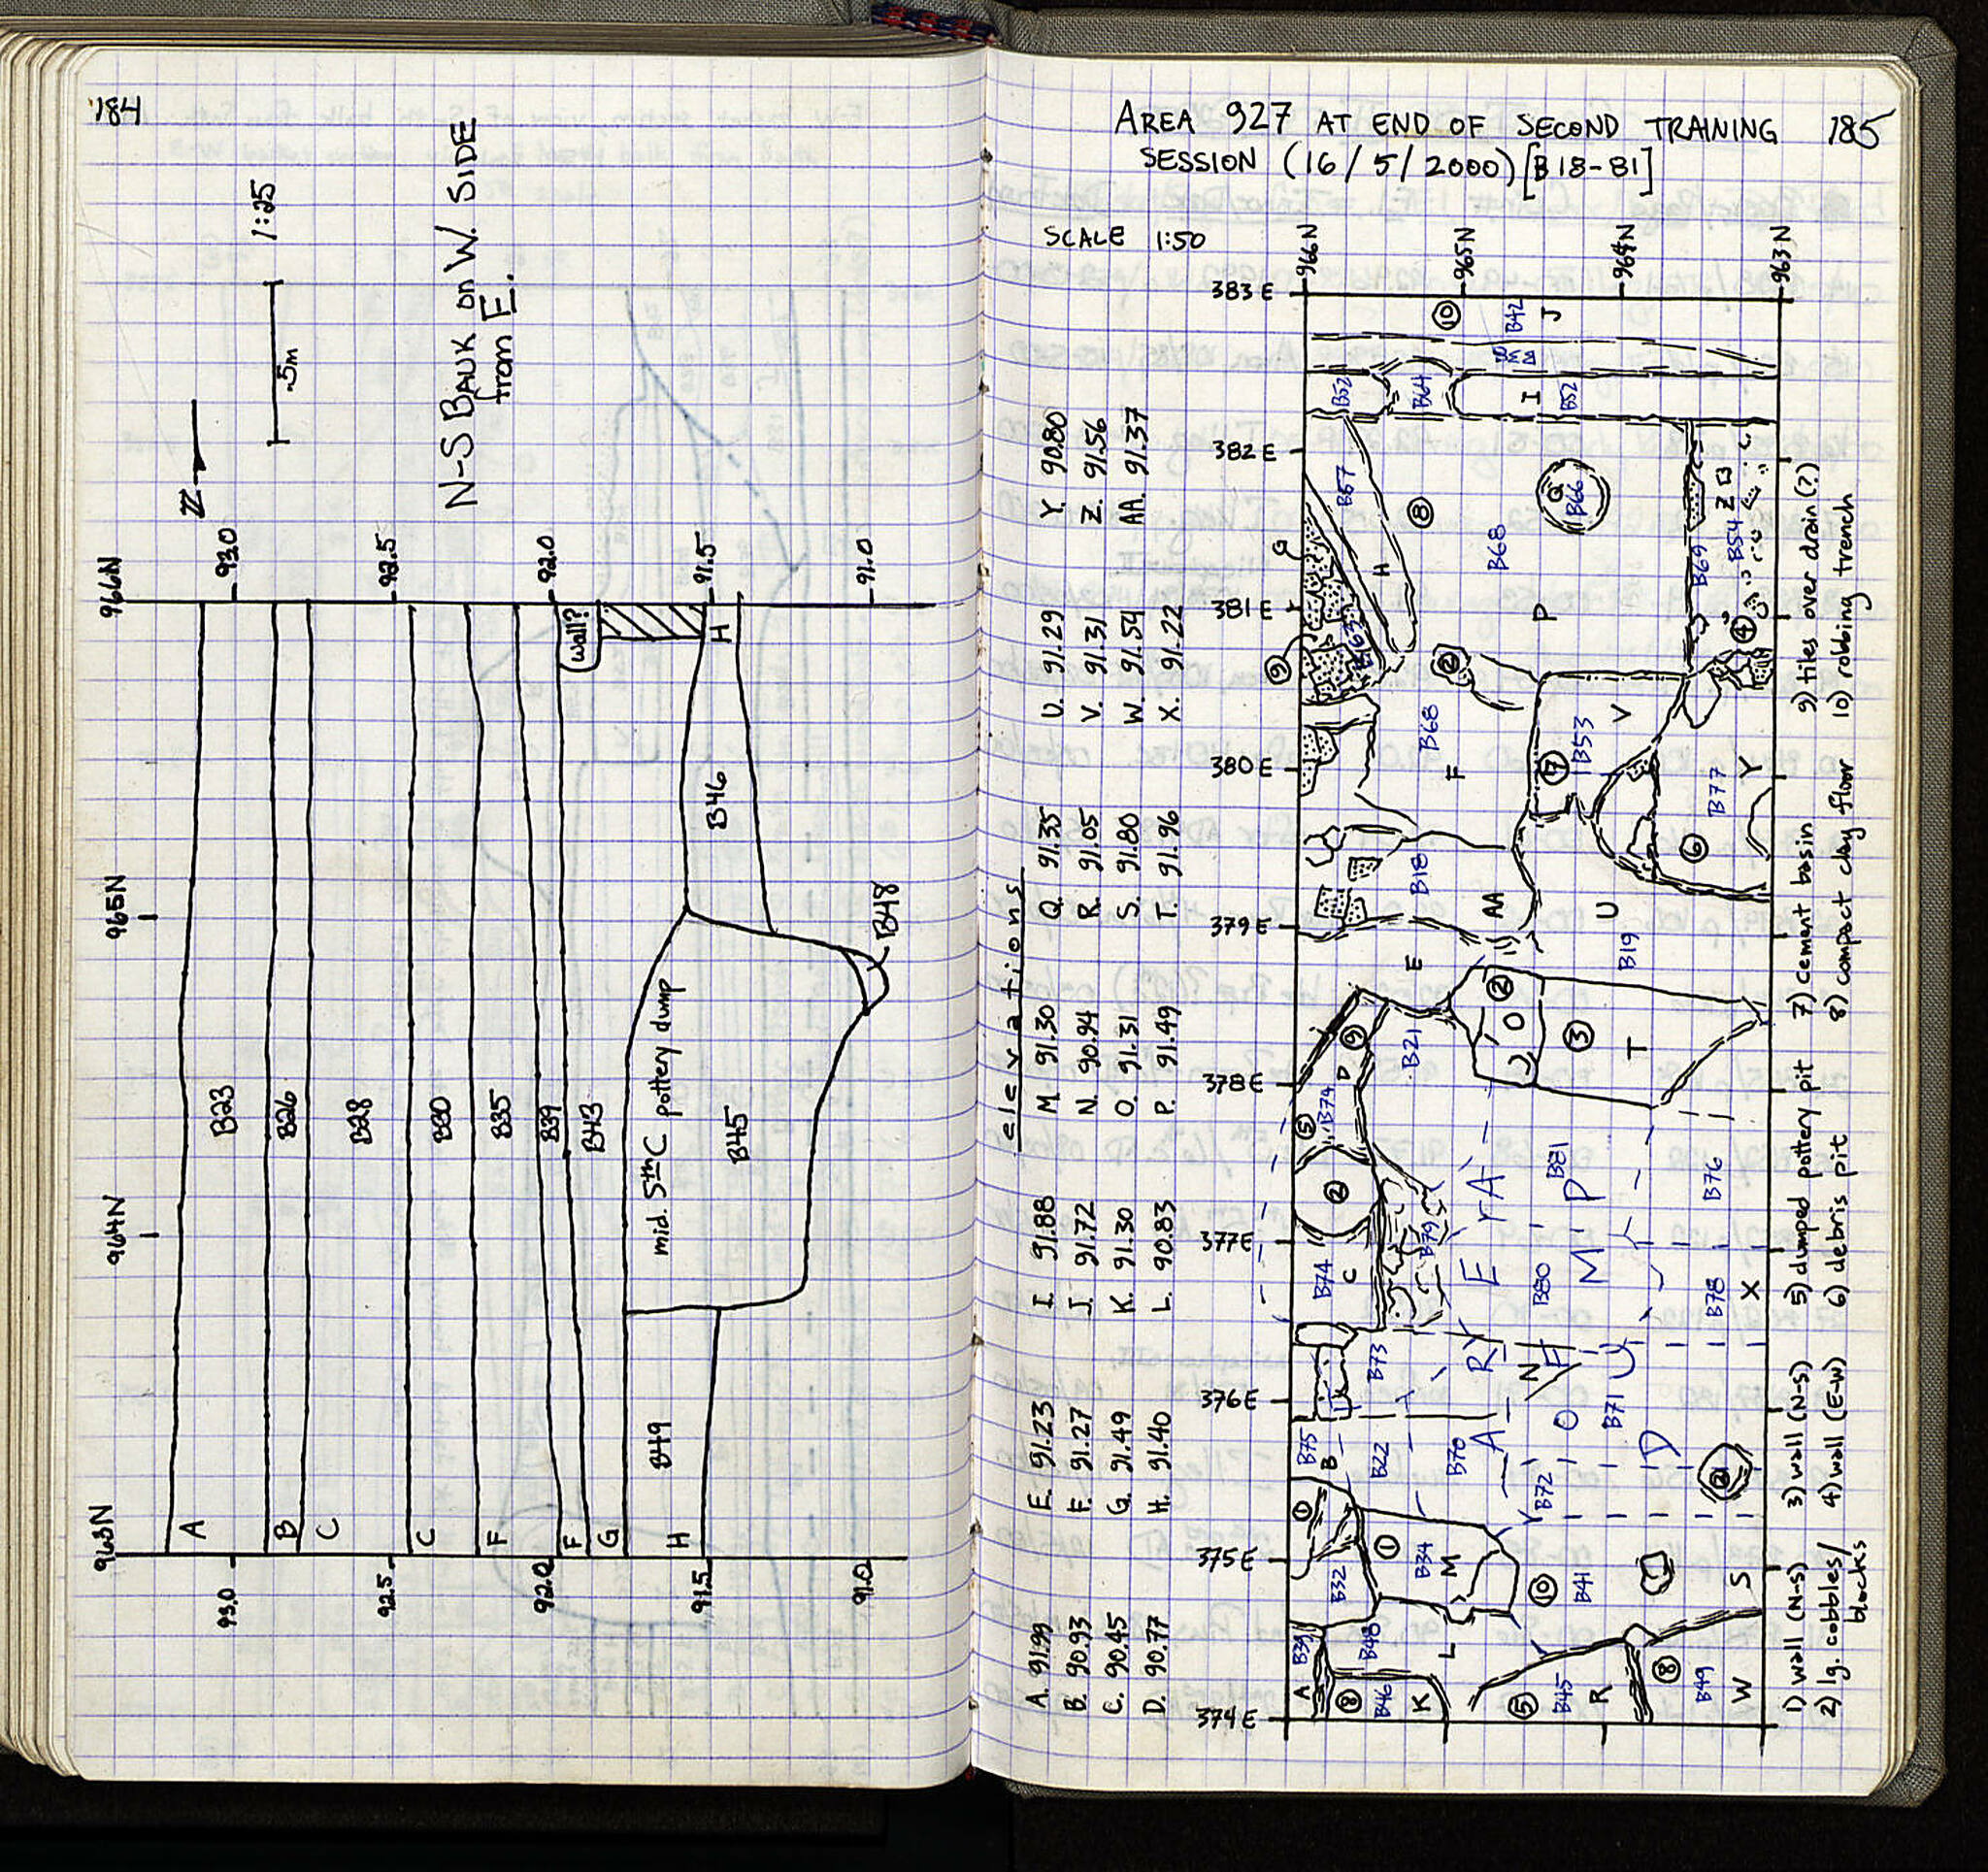 184
1:25
.5m
N-S BAUK ON W. SIDE
from E.
N
963N 964N 965N 966N
93.0 93.0
92.5 92.5
92.0 92.0
91.5 91.5
91.0 91.0
A B23
B B26
C B28
C B30
F B35
F B39
G B43
wall?
H B49
mid. 5th C pottery dump
B45
B46
H
B48
AREA 927 AT END OF SECOND TRAINING 185
SESSION (16/5/2000) [B18-81]
SCALE 1:50
elevations
A. 91.99 E. 91.23 I. 91.88 M. 91.30 Q. 91.35 U. 91.29 Y. 90.80
B. 90.93 F. 91.27 J. 91.72 N. 90.94 R. 91.05 V. 91.31 Z. 91.56
C. 90.45 G. 91.49 K. 91.30 O. 91.31 S. 91.80 W. 91.54 AA. 91.37
D. 90.77 H. 91.40 L. 90.83 P. 91.49 T. 91.96 X. 91.22
374E 375E 376E 377E 378E 379E 380E 381E 382E 383E
966N
965N
964N
963N
A B39 B32 1 B75 B B74 C 2 5 B74 D 9
8 B46 K B48 L 1 B34 M B22 B73 K B79 B21 E
5 B45 R 10 B41 B72 B70 N B71 B80 B81 O 2 3 T
8 B49 W S 2 B78 X B76 B19 U
TEMPORARILY
B18 AA F B68 9 G B63 H B57 B52 B64 I B52
2 8 P B68 Q B66 10 B42 J
7 B53 V 6 B77 Y 4 B69 B54 Z
1) wall (N-S) 3) wall (N-S) 5) dumped pottery pit 7) cement basin 9) tiles over drain (?)
2) lg. cobbles/ 4) wall (E-W) 6) debris pit 8) compact clay floor 10) robbing trench
blocks